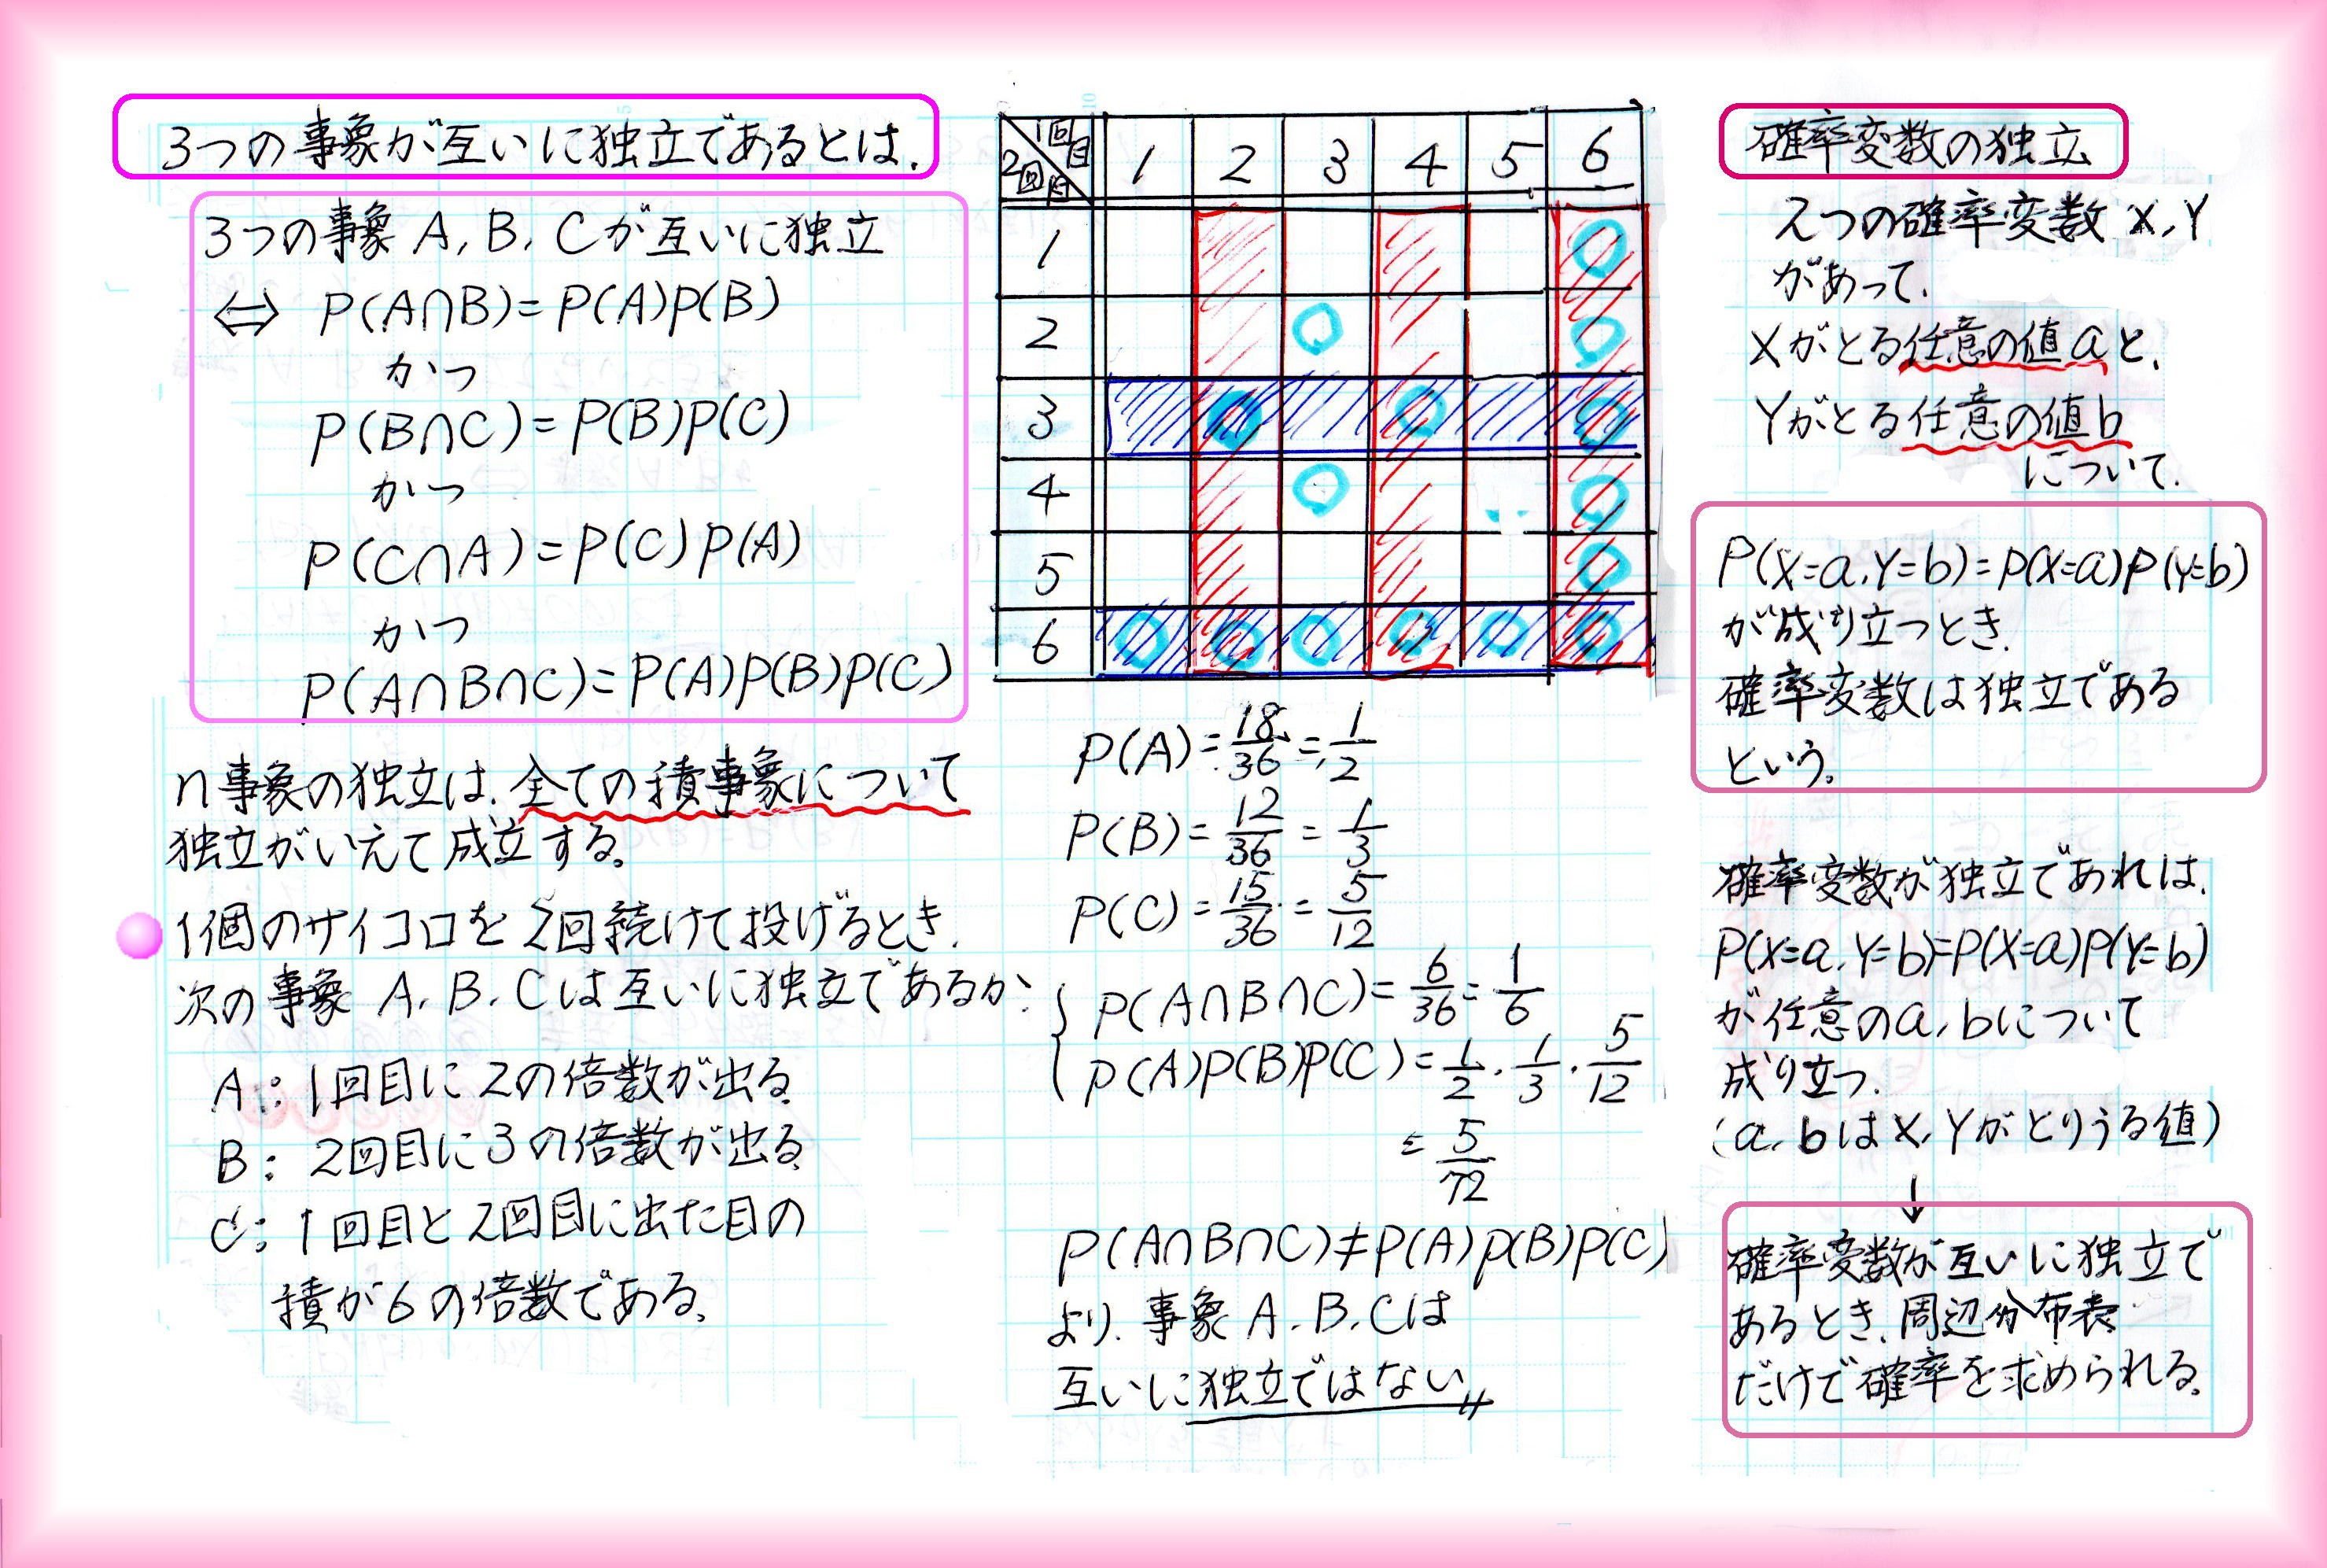 3つの事象が互いに独立であるとは、
3つの事象 A, B, Cが互いに独立
⇔ P(A∩B)=P(A)P(B)
かつ
P(B∩C)=P(B)P(C)
かつ
P(C∩A)=P(C)P(A)
かつ
P(A∩B∩C)=P(A)P(B)P(C)
n事象の独立は、全ての積事象について
独立がいえて成立する。
1個のサイコロを2回続けて投げるとき、
次の事象 A, B, Cは互いに独立であるか、
A: 1回目に2の倍数が出る
B: 2回目に3の倍数が出る
C: 1回目と2回目に出た目の
積が6の倍数である。
1回目
2回目
1 2 3 4 5 6
1
2
3
4
5
6
P(A)=18/36=1/2
P(B)=12/36=1/3
P(C)=15/36=5/12
P(A∩B∩C)=6/36=1/6
P(A)P(B)P(C)=1/2・1/3・5/12
=5/72
P(A∩B∩C)≠P(A)P(B)P(C)
より、事象 A, B, Cは
互いに独立ではない
確率変数の独立
2つの確率変数 X, Y
があって、
Xがとる任意の値aと、
Yがとる任意の値b
について、
P(X=a, Y=b)=P(X=a)P(Y=b)
が成り立つとき、
確率変数は独立である
という。
確率変数が独立であれば、
P(X=a, Y=b)=P(X=a)P(Y=b)
が任意のa, bについて
成り立つ。
(a, bはX, Yがとりうる値)
↓
確率変数が互いに独立で
あるとき、周辺分布表
だけで確率を求められる。